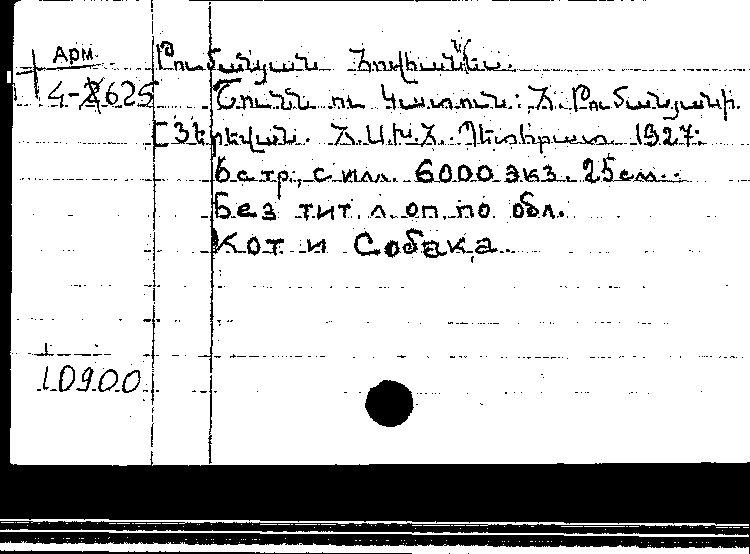 Арм.
Թումանյան Հովհաննես.
4-2625
Շունն ու Կատուն: Հ. Թումանյանի.
[Յերեվան. Հ.Ս.Խ.Հ. Պետհրատ. 1927.
6 стр., с илл. 6000 экз. 25 см.
Без тит. л. оп. по обл.
Кот и Собака.
10900